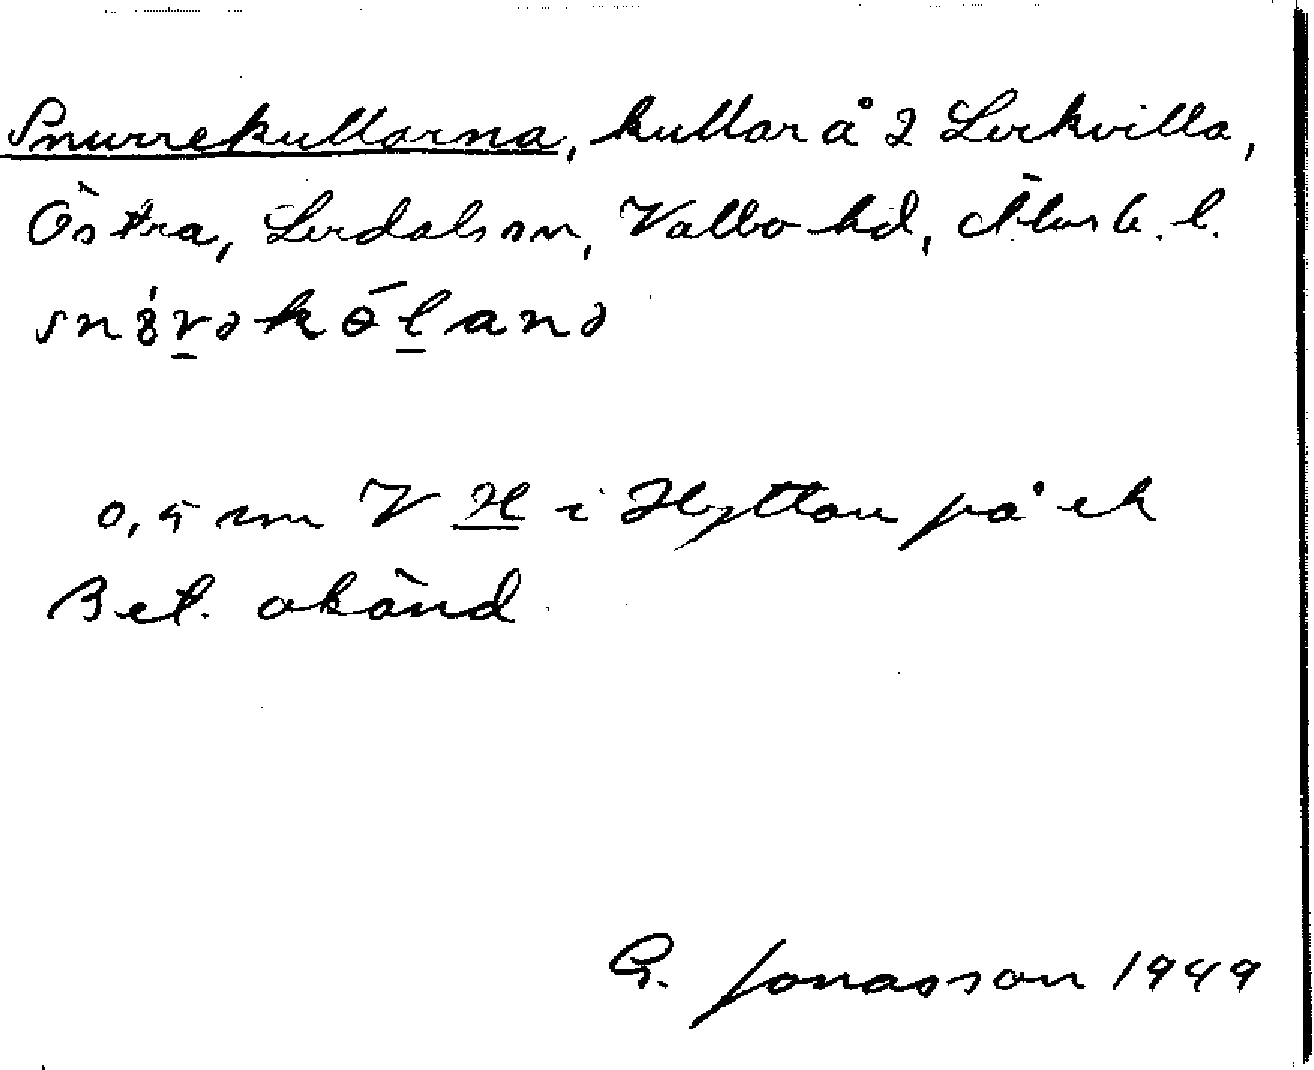 Snurrekullarna, kullar å 2 Lerkvilla,
Östra, Lerdals sn, Valbo hd, Älvsb. l.
snɵ́rəkɵ̄lanə
0,5 cm V H i Hyttan på ek
Bet. okänd
G. Jonasson 1949